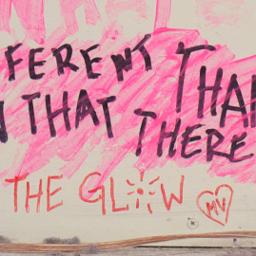 FERENT THA
THAT THERE
THE GLOW MV